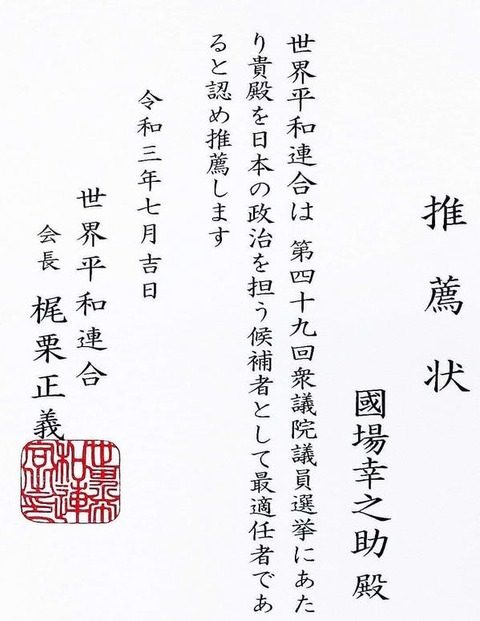 推薦状
國場幸之助 殿
世界平和連合は 第四十九回衆議院議員選挙にあた
り貴殿を日本の政治を担う候補者として最適任者であ
ると認め推薦します
令和三年七月吉日
世界平和連合
会長 梶栗正義